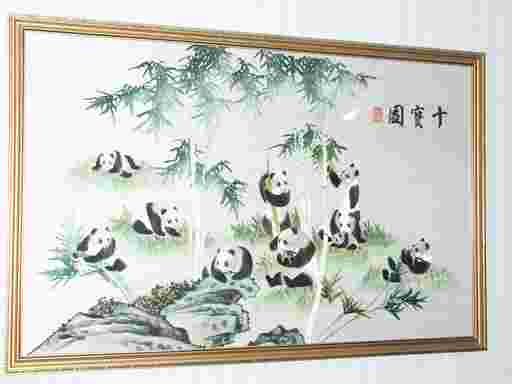 十寶圖